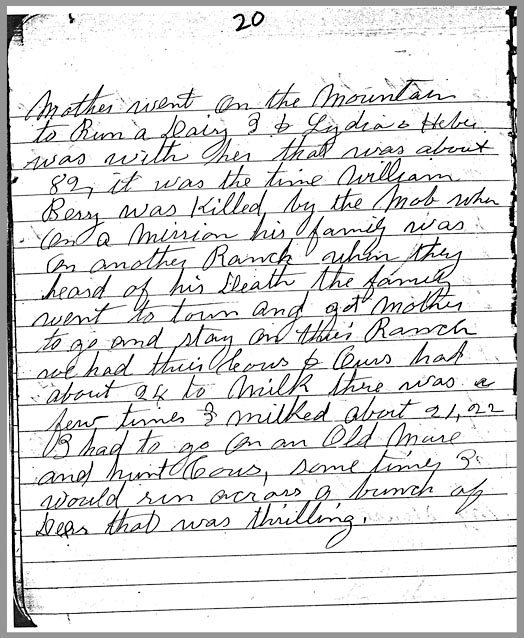 20
Mother went on the Mountain
to Run a Dairy I & Lydia & Heber
was with her that was about
82, it was the time William
Berry was Killed by the Mob when
on a Mission his family was
on another Ranch when they
heard of his Death the family
went to town and got Mother
to go and stay on their Ranch
we had their Cows & Ours had
about 24 to Milk there was a
few times I milked about 21, 22
I had to go on an Old Mare
and hunt Cows, some times I
would run across a bunch of
Dear that was thrilling.